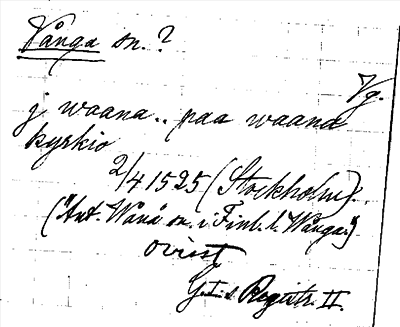 Vånga sn. ?
Vg.
j waana .. paa waana
kyrkio
2/4 1525 (Stockholm).
("Ant. Wånå sn. i Finl. l. Wånga.")
ovisst
G. I:s Registr. II.